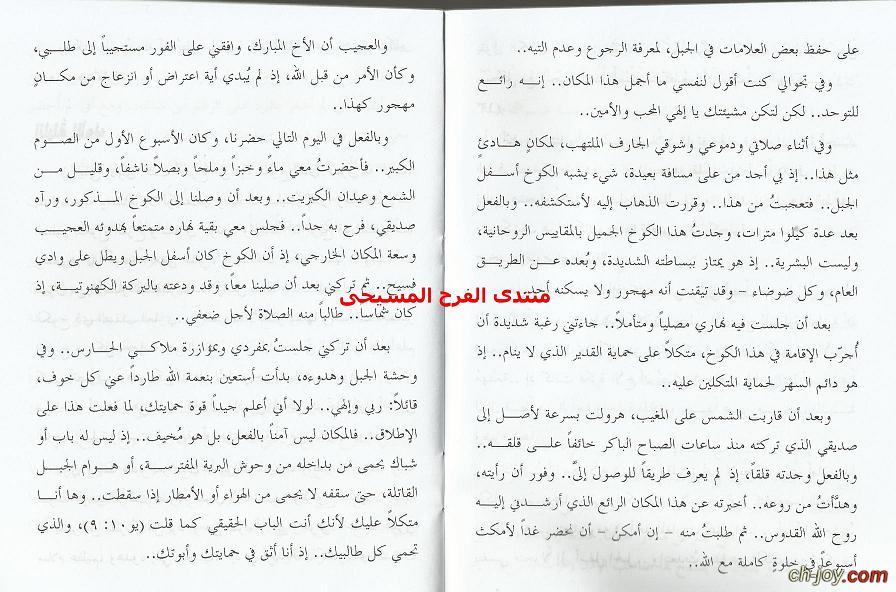 على حفظ بعض العلامات في الجبل، لمعرفة الرجوع وعدم التيه..
وفي تجوالي كنت أقول لنفسي ما أجمل هذا المكان.. إنه رائع
للتوحد.. لكن لتكن مشيئتك يا إلهي المحب والأمين..
وفي أثناء صلاتي ودموعي وشوقي الجارف الملتهب، لمكانٍ هادئٍ
مثل هذا.. إذ بي أجد من على مسافة بعيدة، شيء يشبه الكوخ أسفل
الجبل.. فتعجبتُ من هذا.. وقررت الذهاب إليه لأستكشفه.. وبالفعل
بعد عدة كيلوا مترات، وجدتُ هذا الكوخ الجميل بالمقاييس الروحانية،
وليست البشرية.. إذ هو يمتاز ببساطته الشديدة، وبُعده عن الطريق
العام، وكل ضوضاء - وقد تيقنت أنه مهجور ولا يسكنه أحد.
بعد أن جلست فيه نهاري مصلياً ومتأملاً.. جاءتني رغبة شديدة أن
أُجرّب الإقامة في هذا الكوخ، متكلاً على حماية القدير الذي لا ينام.. إذ
هو دائم السهر لحماية المتكلين عليه..
وبعد أن قاربت الشمس على المغيب، هرولت بسرعة لأصل إلى
صديقي الذي تركته منذ ساعات الصباح الباكر خائفاً على قلقه..
وبالفعل وجدته قلقاً، إذ لم يعرف طريقاً للوصول إليَّ.. وفور أن رأيته،
وهدَّأتُ من روعه.. أخبرته عن هذا المكان الرائع الذي أرشدني إليه
روح الله القدوس.. ثم طلبتُ منه - إن أمكن - أن نحضر غداً لأمكث
أسبوعاً في خلوةٍ كاملة مع الله..
والعجيب أن الأخ المبارك، وافقني على الفور مستجيباً إلى طلبي،
وكأن الأمر من قبل الله، إذ لم يُبدي أية اعتراض أو انزعاج من مكانٍ
مهجور كهذا..
وبالفعل في اليوم التالي حضرنا، وكان الأسبوع الأول من الصوم
الكبير.. فأحضرتُ معي ماءً وخبزاً وملحاً وبصلاً ناشفاً، وقليل من
الشمع وعيدان الكبريت.. وبعد أن وصلنا إلى الكوخ المذكور، ورآه
صديقي، فرح به جداً.. فجلس معي بقية نهاره متمتعاً بهدوئه العجيب
وسعة المكان الخارجي، إذ أن الكوخ كان أسفل الجبل ويطل على وادي
فسيح.. ثم تركني بعد أن صلينا معاً، وقد ودعته بالبركة الكهنوتية، إذ
كان شماسا.. طالباً منه الصلاة لأجل ضعفي..
بعد أن تركني جلستُ بمفردي وبمؤازرة ملاكي الحارس.. وفي
وحشة الجبل وهدوءه، بدأت أستعين بنعمة الله طارداً عني كل خوف،
قائلاً: ربي وإلهي.. لولا أني أعلم جيداً قوة حمايتك، لما فعلت هذا على
الإطلاق.. فالمكان ليس آمناً بالفعل، بل هو مُخيف.. إذ ليس له باب أو
شباك يحمى من بداخله من وحوش البرية المفترسة، أو هوام الجبل
القاتلة، حتى سقفه لا يحمى من الهواء أو الأمطار إذا سقطت.. وها أنا
متكلاً عليك لأنك أنت الباب الحقيقي كما قلت (يو١٠: ٩)، والذي
تحمي كل طالبيك.. إذ أنا أثق في حمايتك وأبوتك..
منتدى الفرح المسيحى
ch-joy.com